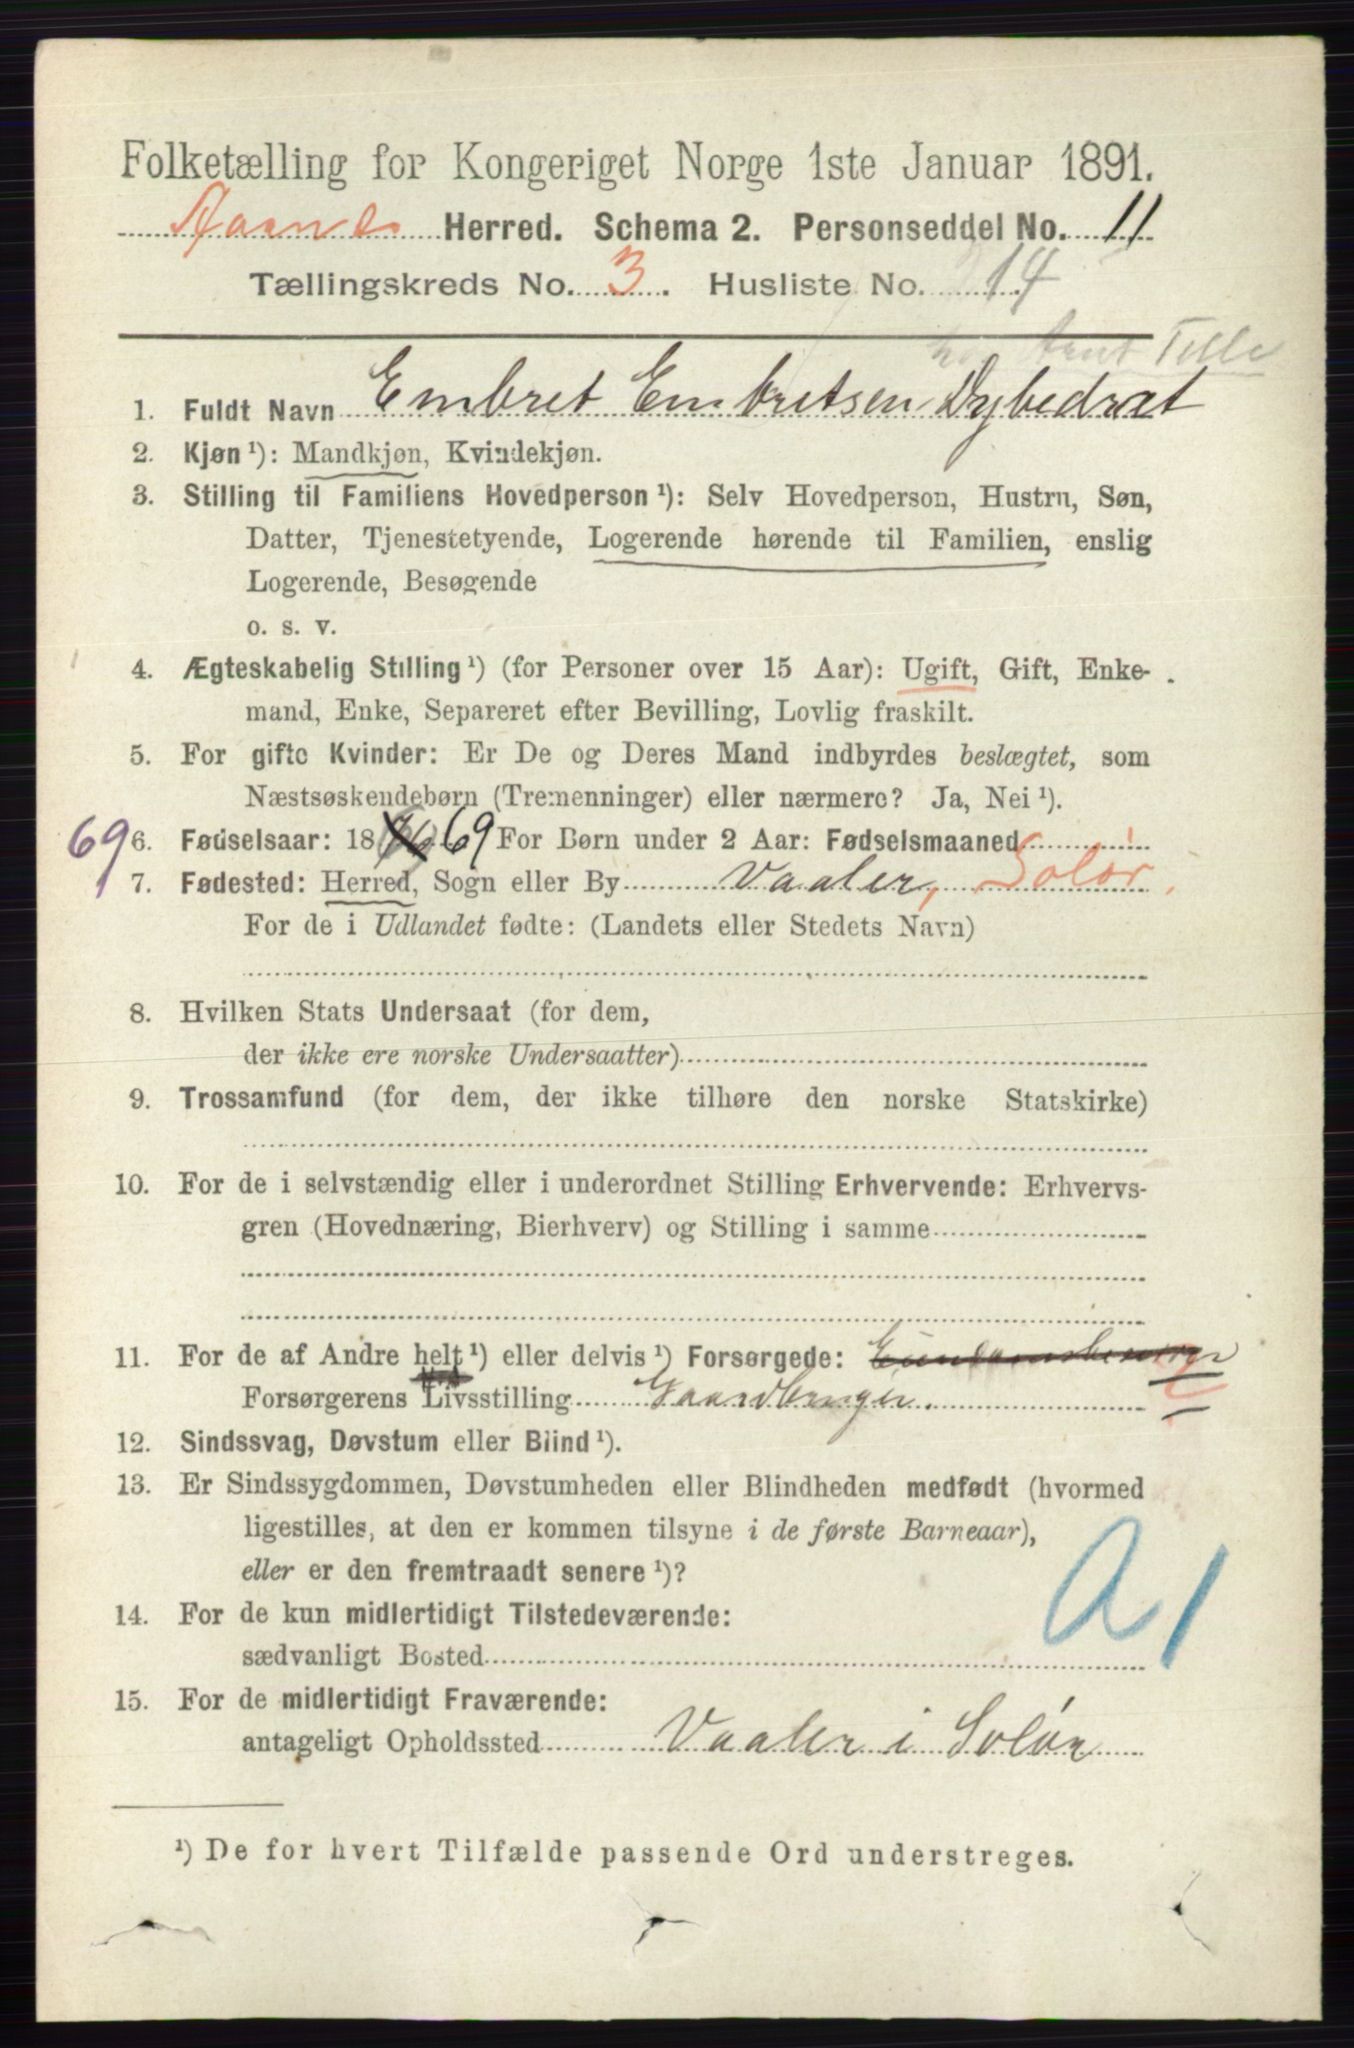 Folketælling for Kongeriget Norge 1ste Januar 1891.
Aasnes Herred. Schema 2. Personseddel No. 11
Tællingskreds No. 3. Husliste No. 14
Telle
1. Fuldt Navn Embret Embretsen Dybedræt
2. Kjøn ¹): Mandkjøn, Kvindekjøn.
3. Stilling til Familiens Hovedperson ¹): Selv Hovedperson, Hustru, Søn,
Datter, Tjenestetyende, Logerende hørende til Familien, enslig
Logerende, Besøgende
o. s. v.
4. Ægteskabelig Stilling ¹) (for Personer over 15 Aar): Ugift, Gift, Enke-
mand, Enke, Separeret efter Bevilling, Lovlig fraskilt.
5. For gifte Kvinder: Er De og Deres Mand indbyrdes beslægtet, som
Næstsøskendebørn (Tremenninger) eller nærmere? Ja, Nei ¹).
69 6. Fødselsaar: 18 69 For Børn under 2 Aar: Fødselsmaaned
7. Fødested: Herred, Sogn eller By Vaaler, Solør.
For de i Udlandet fødte: (Landets eller Stedets Navn)
8. Hvilken Stats Undersaat (for dem,
der ikke ere norske Undersaatter)
9. Trossamfund (for dem, der ikke tilhøre den norske Statskirke)
10. For de i selvstændig eller i underordnet Stilling Erhvervende: Erhvervs-
gren (Hovednæring, Bierhverv) og Stilling i samme
11. For de af Andre helt ¹) eller delvis ¹) Forsørgede:
Forsørgerens Livsstilling Gaardbruger.
12. Sindssvag, Døvstum eller Blind ¹).
13. Er Sindssygdommen, Døvstumheden eller Blindheden medfødt (hvormed
ligestilles, at den er kommen tilsyne i de første Barneaar),
eller er den fremtraadt senere ¹)?
A1
14. For de kun midlertidigt Tilstedeværende:
sædvanligt Bosted
15. For de midlertidigt Fraværende:
antageligt Opholdssted Vaaler i Solør
¹) De for hvert Tilfælde passende Ord understreges.